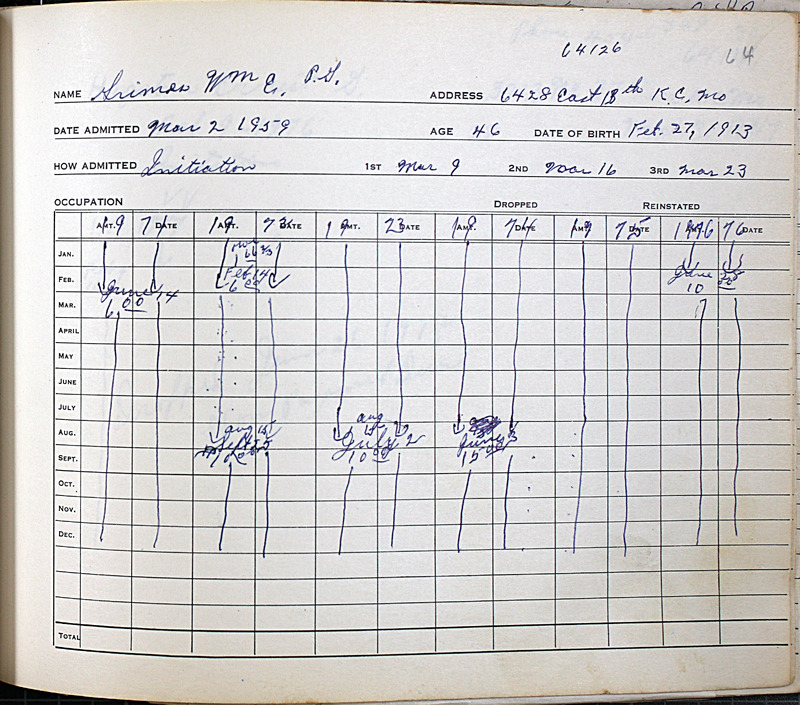 64126
64
NAME Grimes Wm E. P.G. ADDRESS 6428 East 18th K.C. Mo
DATE ADMITTED Mar 2 1959 AGE 46 DATE OF BIRTH Feb. 27, 1913
HOW ADMITTED Initiation 1ST Mar 9 2ND Mar 16 3RD Mar 23
OCCUPATION DROPPED REINSTATED
AMT. 19 71 DATE 19 73 19 23 DATE 19 74 19 75 1976 76 DATE
JAN. 66 2/3
FEB. Feb 14 June 25
June 14 6 00 10 00
MAR. 6 00
APRIL
MAY
JUNE
JULY
aug
AUG. aug 15 15
Sept 25 July 2 June 3
SEPT. 10 00 10 00 15 00
OCT.
NOV.
DEC.
TOTAL